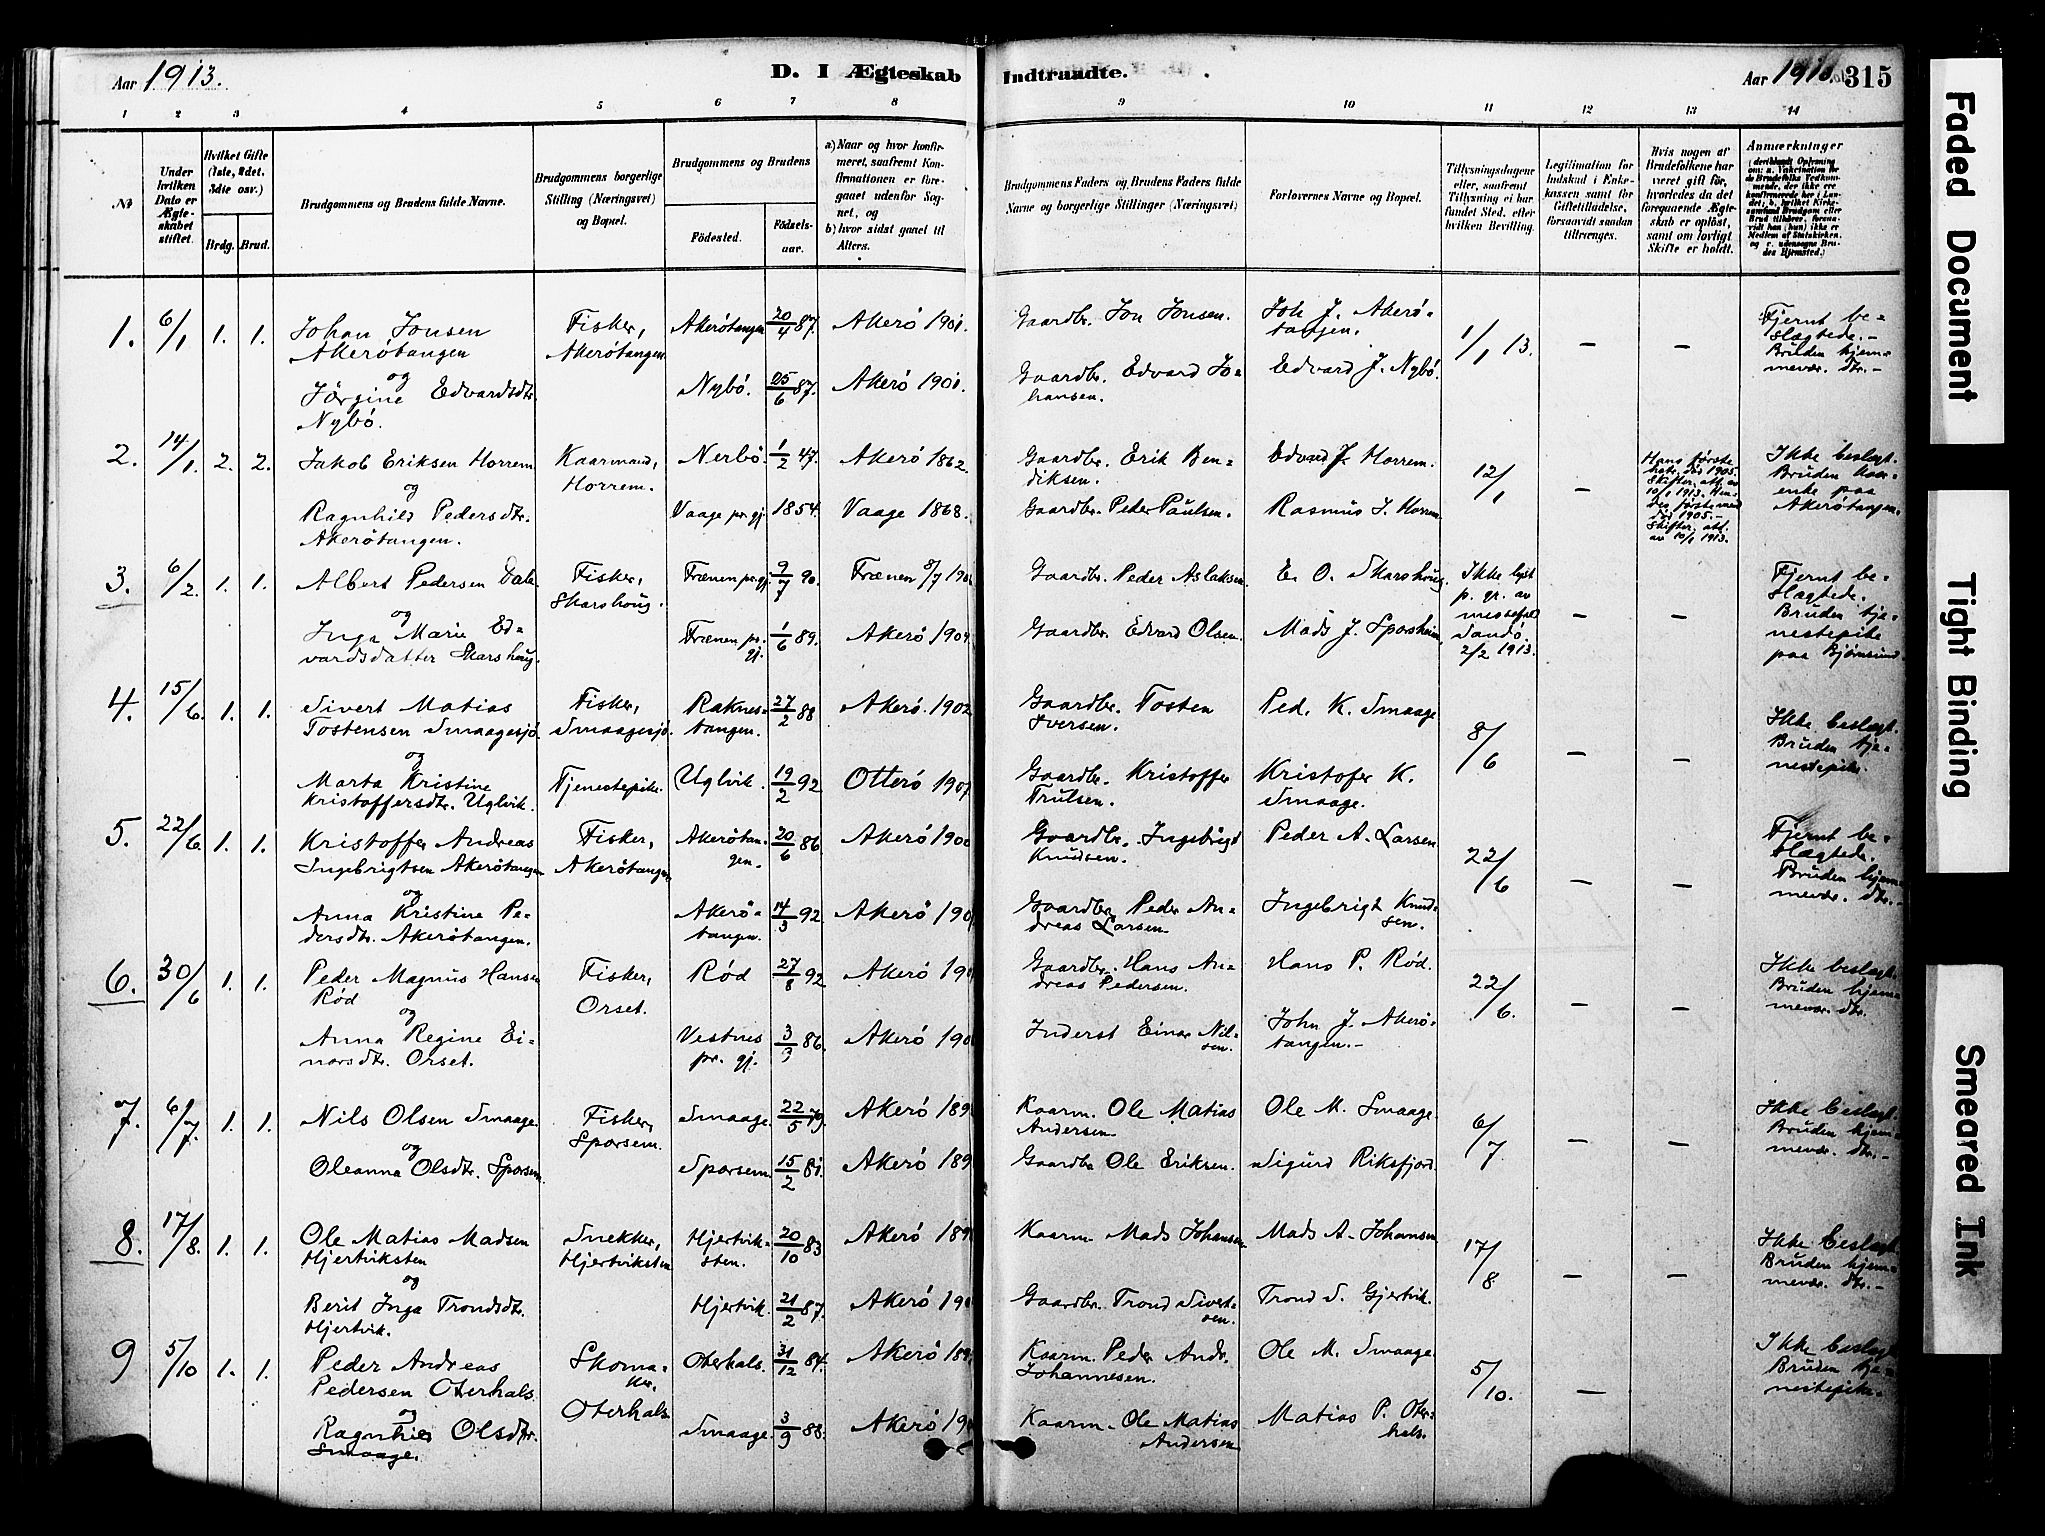 Aar 1913.
D. I Ægteskab Indtraadte.
Aar 1913. 315
1 2 3 4 5 6 7 8 9 10 11 12 13 14
No
Under hvilken Dato er Ægteskabet stiftet.
Hvilket Gifte (1ste, 2det, 3die osv.)
Brdg. Brud.
Brudgommens og Brudens fulde Navne.
Brudgommens borgerlige Stilling (Næringsvei) og Bopæl.
Brudgommens og Brudens
Födested. Födselsaar.
a) Naar og hvor konfirmeret, saafremt Konfirmationen er foregaaet udenfor Sognet, og
b) hvor sidst gaaet til Alters.
Brudgommens Faders og Brudens Faders fulde Navne og borgerlige Stillinger (Næringsvei)
Forlovernes Navne og Bopæl.
Tillysningsdagene eller, saafremt Tillysning ei har fundet Sted, efter hvilken Bevilling.
Legitimation for Indskud i Enkekassen samt for Giftetilladelse, forsaavidt saadan tiltrænges.
Hvis nogen af Brudefolkene har været gift før, hvorledes da det foregaaende Ægteskab er opløst, samt om lovligt Skifte er holdt.
Anmærkninger
1. 6/1 1. 1. Johan Jonsen Akerötangen
Fisker, Akerötangen. Akerötangen 20/4 87. Akerö 1901.
Gaardbr. Jon Jonsen. Joh J. Akerötangen. 1/1 13. — —
Fjernt beslægtede.- Bruden hjemmevær. dtr.-
og
Jörgine Edvardsdtr. Nybö.
Nybö. 25/6 87. Akerö 1901.
Gaardbr. Edvard Johansen. Edvard J. Nybö.
2. 14/1. 2. 2. Jakob Eriksen Horrem
Kaarmand, Horrem. Nerbö. 1/2 47. Akerö 1862.
Gaardbr. Erik Bendiksen. Edvard J. Horrem. 12/1 —
Hans förste död 1905. Skifter. att. av 10/1 1913.
död 1905.- Skifter. att. av 10/1 1913.
Ikke beslægt. Bruden enke paa Akerötangen.
og
Ragnhild Pedersdtr. Akerötangen.
Vaage pr. gj. 1854. Vaage 1868.
Gaardbr. Peder Paulsen. Rasmus J. Horrem
3. 6/2 1. 1. Albert Pedersen Dale
Fisker, Skarshoug. Frænen pr. gj. 9/7 90. Frænen 8/7 190
Gaardbr. Peder Aslaksen. E. O. Skarshoug.
Ikke lyst p. gr. av messefald Sandö. 2/2 1913. — —
Fjernt beslægtede. Bruden tjenestepike paa Bjørnsund
og
Inga Marie Edvardsdatter Skarshoug.
Frænen pr. gj. 1/6 89. Akerö 1904.
Gaardbr. Edvard Olsen. Mads J. Sporsheim
4. 15/6. 1. 1. Sivert Matias Tostensen Smaagesjö.
Fisker, Smaagesjö. Raknestangen. 27/2 88 Akerö. 1902
Gaardbr. Tosten Iversen. Ped. K. Smaage 8/6 — —
Ikke beslægt. Bruden tjenestepike.
og
Marta Kristine Kristoffersdtr. Uglvik.
Tjenestepike. Uglvik. 19/2 92 Otterö 1907
Gaardbr. Kristoffer Trulsen. Kristofer K. Smaage.
5. 22/6. 1. 1. Kristoffer Andreas Ingebrigtsen Akerötangen
Fisker, Akerötangen Akerötangen. 20/6 86. Akerö 1900
Gaardbr. Ingebrigt Knudsen. Peder A. Larsen 22/6 — —
Fjernt beslægtede. Bruden hjemmevær. dtr.-
og
Anna Kristine Pedersdtr. Akerötangen.
Akerötangen. 14/3 92. Akerö 190
Gaardbr. Peder Andreas Larsen. Ingebrigt Knudsen.
6. 30/6 1. 1. Peder Magnus Hansen Rød
Fisker, Orset. Rød 27/8 92 Akerö 19
Gaardbr. Hans Andreas Pedersen. Hans P. Rød. 22/6. — —
Ikke beslægt. Bruden hjemmevær. dtr.
og
Anna Regine Einarsdtr. Orset.
Vestnes pr. gj. 3/3 86. Akerö 190
Inderst Einar Nilsen. John J. Akerötangen.-
7. 6/7. 1. 1. Nils Olsen Smaage.
Fisker, Sporsem. Smaage. 22/5 79. Akerö 189
Kaarm. Ole Matias Andersen. Ole M. Smaage. 6/7 — —
Ikke beslægt. Bruden hjemmevær. dtr.-
og
Oleanna Olsdtr. Sporsem.
Sporsem 15/2 81. Akerö 189
Gaardbr Ole Eriksen. Sigurd Riksfjord.
8. 17/8. 1. 1. Ole Matias Madsen Hjertviksten
Snekker, Hjertviksten Hjertviksten. 20/10 83 Akerö 189
Kaarm Mads Johansen Mads A. Johansen 17/8 — —
Ikke beslægt. Bruden hjemmevær. dtr.-
og
Berit Inga Trondsdtr. Hjertvik.
Hjertvik. 21/2 87. Akerö 190
Gaardbr. Trond Sivertsen. Trond S. Gjertvik.
9 5/10 1. 1. Peder Andreas Pedersen Oterhals
Skomaker, Oterhals Oterhals. 31/12 84. Akerö 189
Kaarm. Peder Andr. Johannesen. Ole M. Smaage. 5/10. —
Ikke beslægt. Bruden tjenestepike.
og
Ragnhild Olsdtr. Smaage.
Smaage. 3/9 88. Akerö 190
Kaarm. Ole Matias Andersen Matias P. Oterhals.
Faded Document
Tight Binding
Smeared Ink